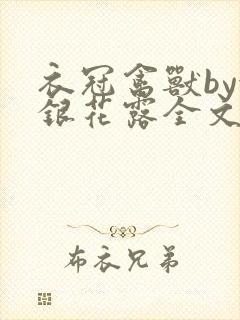 衣冠禽獸by
銀花露全文
布衣兄弟